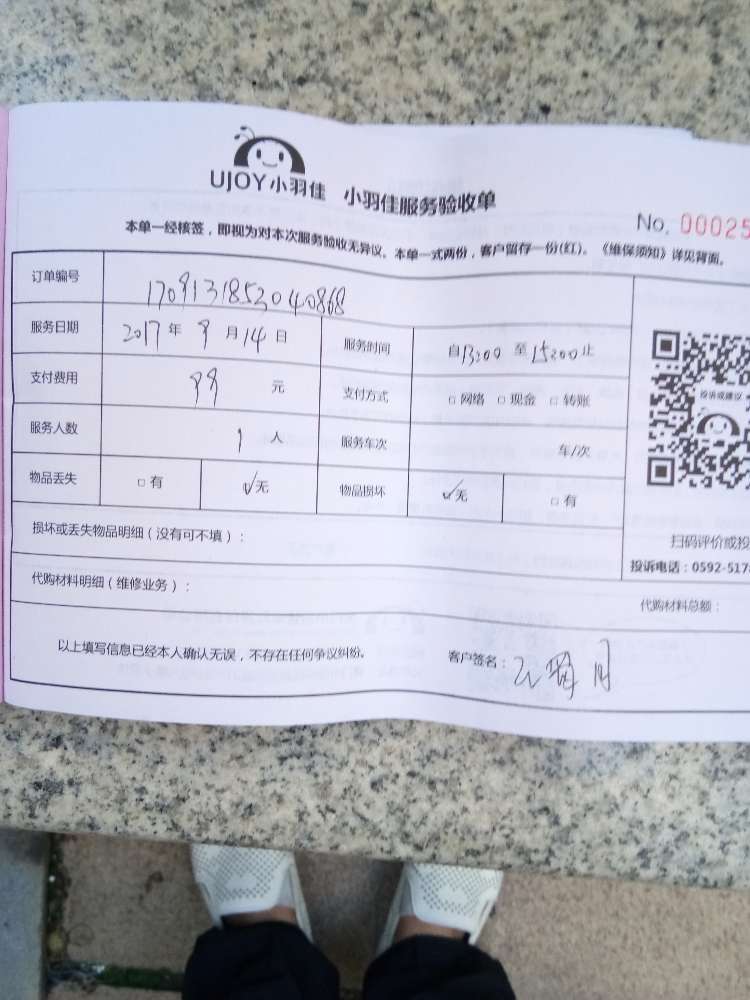 UJOY小羽佳 小羽佳服务验收单
No. 00025
本单一经核签,即视为对本次服务验收无异议。本单一式两份,客户留存一份(红)。《维保须知》详见背面。
订单编号 1709131853040868
服务日期 2017年9月14日 服务时间 自13:00至15:00止
支付费用 99元 支付方式 □网络 □现金 □转账
服务人数 1人 服务车次 车/次
物品丢失 □有 ☑无 物品损坏 ☑无 □有
投诉或建议
扫码评价或投
投诉电话:0592-517
损坏或丢失物品明细(没有可不填):
代购材料明细(维修业务): 代购材料总额:
以上填写信息已经本人确认无误,不存在任何争议纠纷。 客户签名: